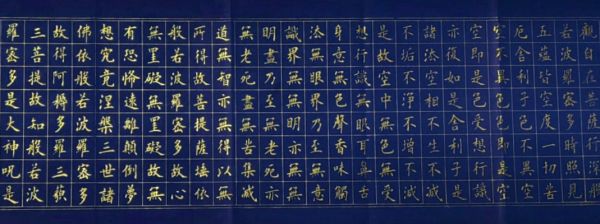 觀自在菩薩行深般
若波羅蜜多時照見
五蘊皆空度一切苦
厄舍利子色不異空
空不異色色即是空
空即是色受想行識
亦復如是舍利子是
諸法空相不生不滅
不垢不淨不增不減
是故空中無色無受
想行識無眼耳鼻舌
身意無色聲香味觸
法無眼界乃至無意
識界無無明亦無無
明盡乃至無老死亦
無老死盡無苦集滅
道無智亦無得以無
所得故菩提薩埵依
般若波羅蜜多故心
無罣礙無罣礙故無
有恐怖遠離顛倒夢
想究竟涅槃三世諸
佛依般若波羅蜜多
故得阿耨多羅三藐
三菩提故知般若波
羅蜜多是大神呪是